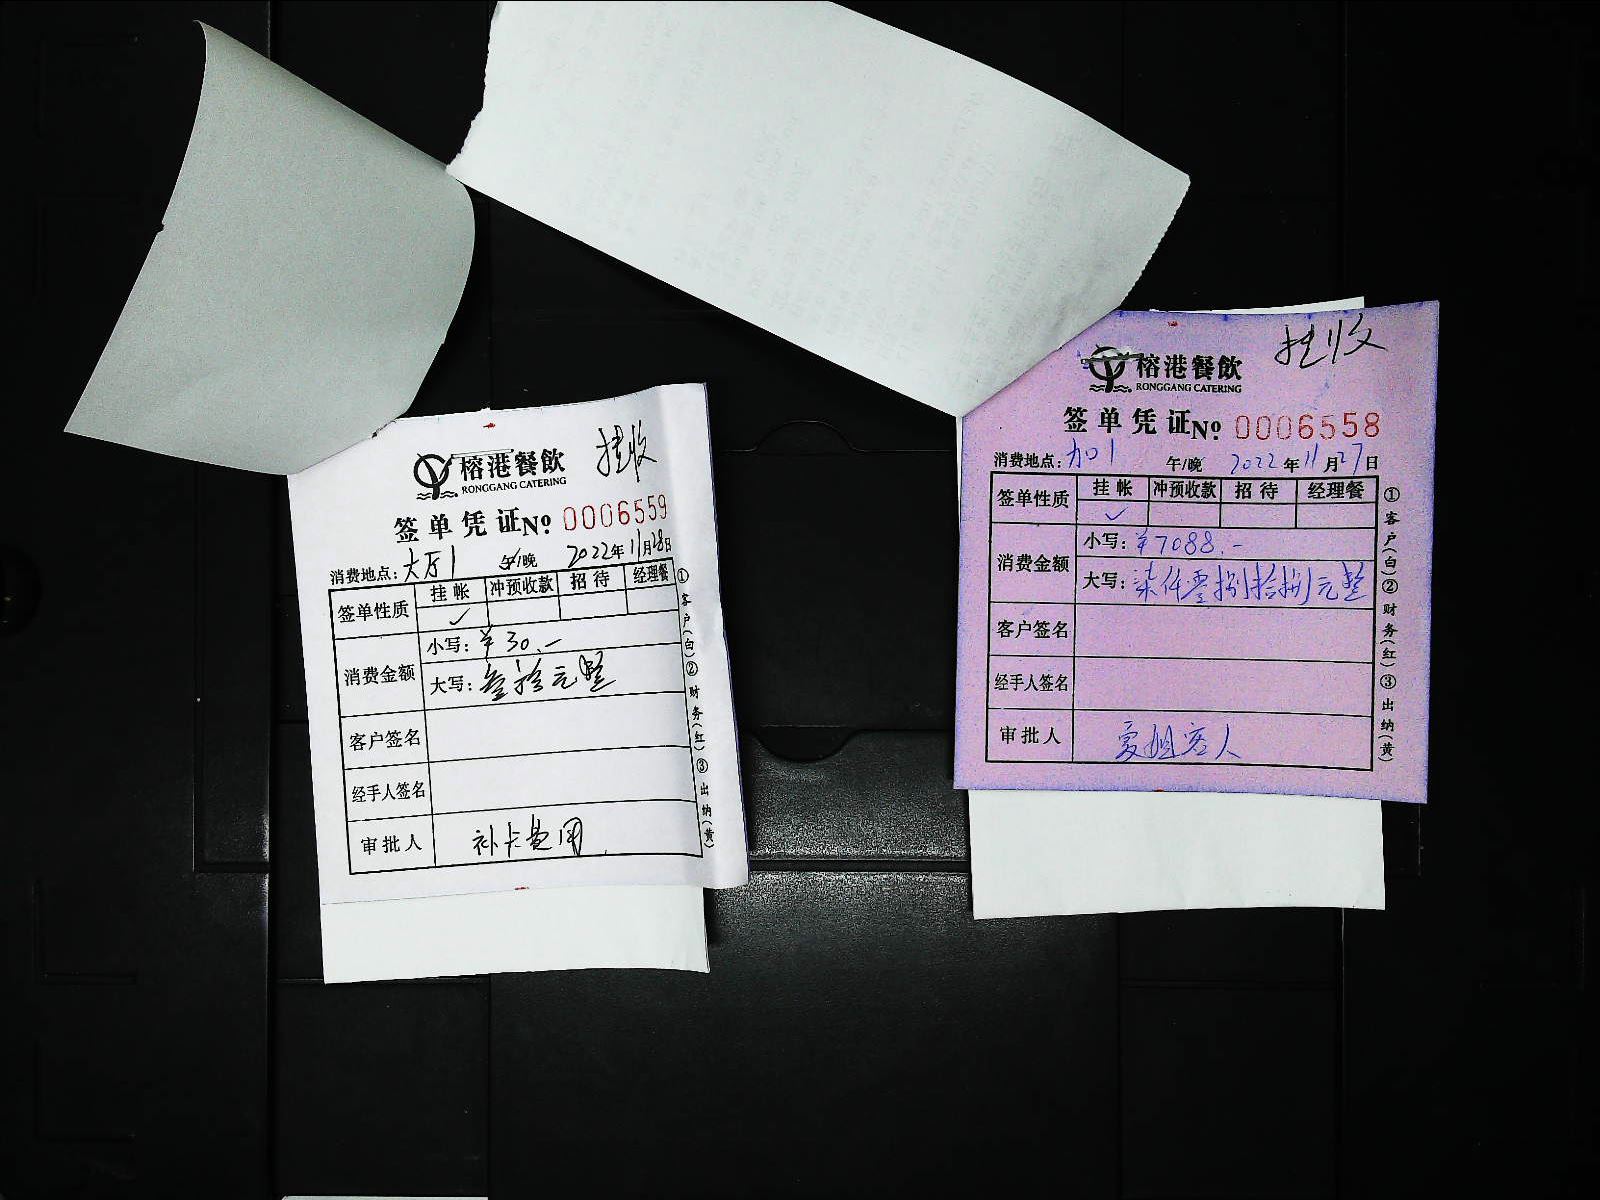 挂收
榕港餐飲
RONGGANG CATERING
签单凭证No 0006559
消费地点：大厅1 午/晚 2022年11月28日
签单性质 挂帐 冲预收款 招待 经理餐
✓
消费金额 小写：¥30.-
大写：叁拾元整
客户签名
经手人签名
审批人 补卡费用
①客户(白)②财务(红)③出纳(黄)
挂收
榕港餐飲
RONGGANG CATERING
签单凭证No 0006558
消费地点：加1 午/晚 2022年11月27日
签单性质 挂帐 冲预收款 招待 经理餐
✓
消费金额 小写：¥7088.-
大写：柒仟零捌拾捌元整
客户签名
经手人签名
审批人 客人
①客户(白)②财务(红)③出纳(黄)